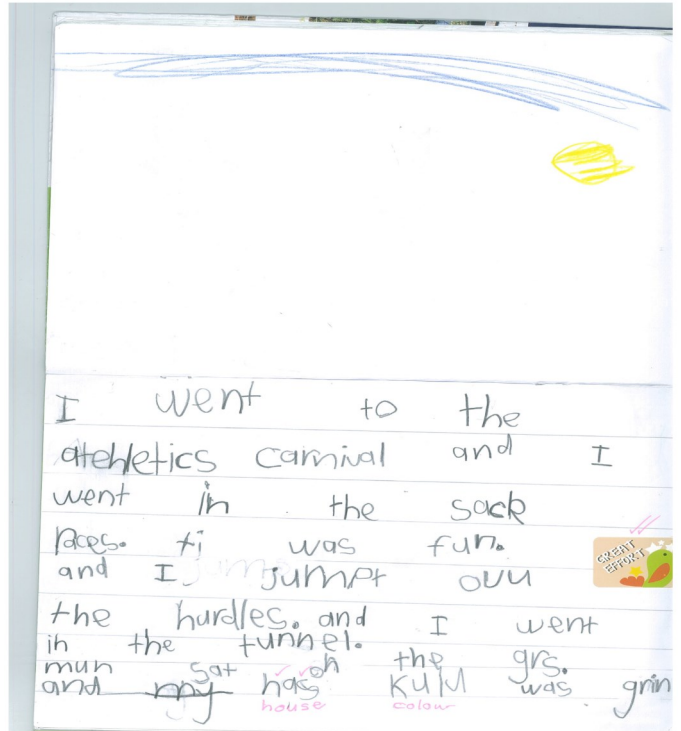 I went to the
atehletics carnival and I
went in the sack
races. ti was fun.
GREAT EFFORT
and I jumpt ovu
the hurdles. and I went
in the tunnel.
mun sat oh the grs.
and my has KulU was grin
house colour